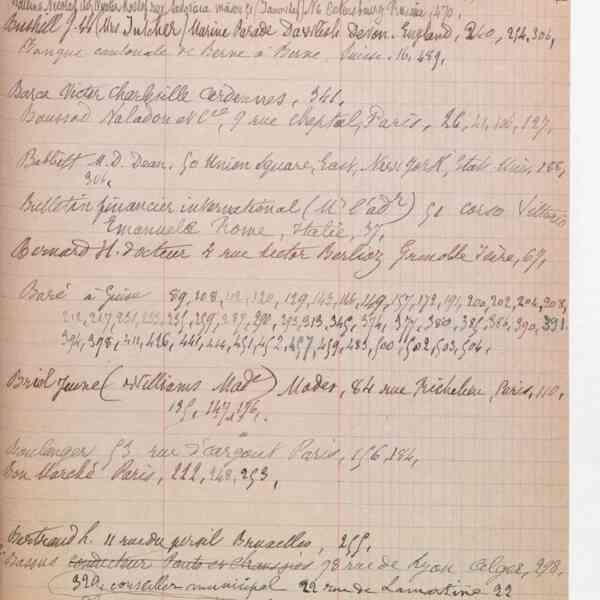 Bushell J. H. (Mrs Butcher) Marine Parade Dawlish Devon. England, 240, 254, 306,
Banque cantonale de Berne à Berne, Suisse. 16, 489,
Barca Victor Charleville Ardennes, 341,
Boussod Valadon et Cie, 9 rue Chaptal, Paris, 26, 41, 106, 127,
Babbitt M. D. Dean. 50 Union Square, East, New York, Etat Unis, 188,
306,
Bulletin financier international (Mr l'adr) 51 corso Vittorio
Emanuele Rome, Italie, 37,
Bernard H. docteur 2 rue Hector Berlioz Grenoble Isère, 67,
Baré à Guise 89, 108, 112, 120, 129, 143, 146, 149, 157, 172, 191, 200, 202, 204, 208,
212, 217, 231, 235, 259, 287, 290, 293, 313, 345, 374, 377, 380, 385, 386, 390, 391
394, 398, 411, 426, 441, 444, 451, 452, 457, 459, 483, 500, 502, 503, 504,
Briol Jeune (Williams Made) Modes, 84 rue Richelieu, Paris, 110,
135, 147, 176,
Boulanger 53 rue d'argout Paris, 156, 184,
Bon Marché Paris, 222, 248, 253,
Bertrand L. 11 rue du persil Bruxelles, 255,
Bassus conducteur Ponts et Chaussées 78 rue de Lyon Alger, 298,
320, conseiller municipal 22 rue de Lamartine 22